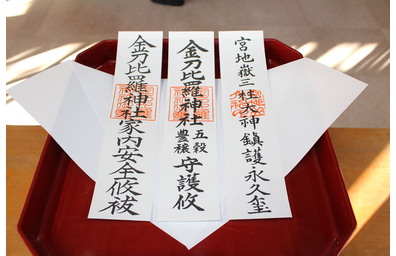 宮地嶽三柱大神鎮護永久璽
金刀比羅神社
五穀
豊穣
守護攸
金刀比羅神社家内安全攸祓